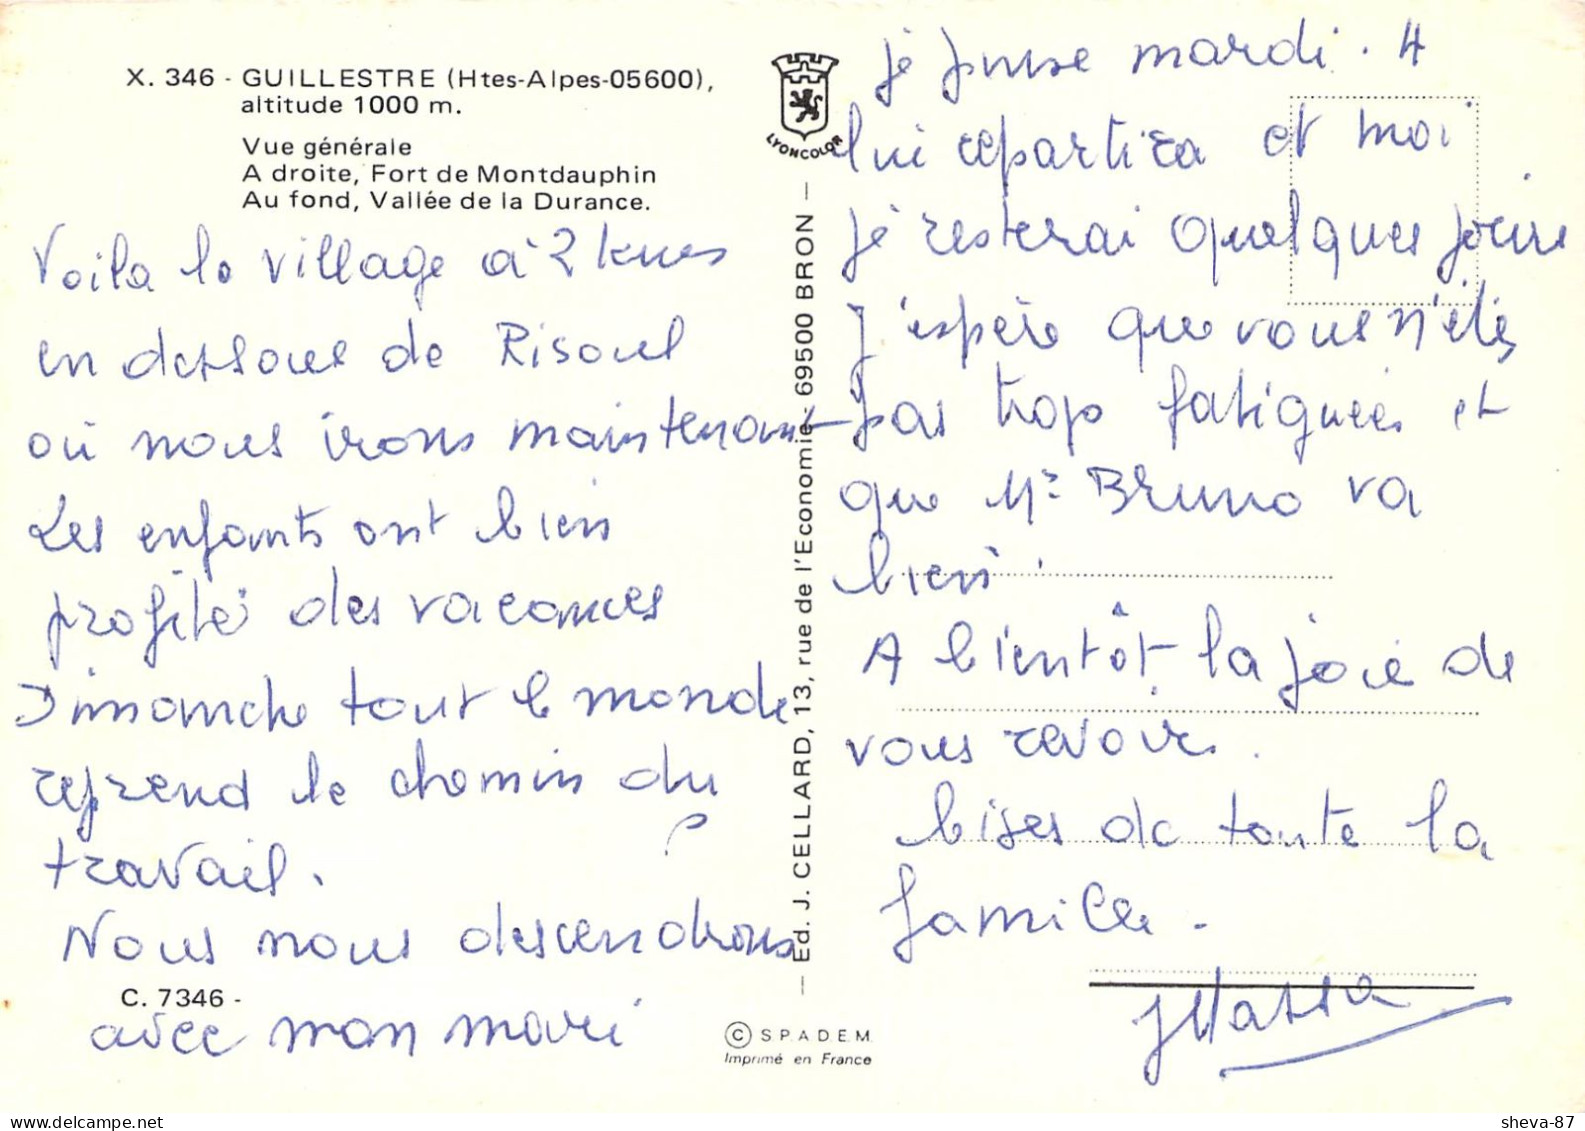 X. 346 - GUILLESTRE (Htes-Alpes-05600),
altitude 1000 m.
Vue générale
A droite, Fort de Montdauphin
Au fond, Vallée de la Durance.
Voila le village à 2 kms
en dessous de Risoul
où nous irons maintenant
Les enfants ont bien
profité des vacances
Dimanche tout le monde
reprend le chemin du
travail.
Nous nous descendrons
C. 7346 -
avec mon mari
LYONCOLOR
Ed. J. CELLARD, 13, rue de l'Economie - 69500 BRON
© S.P.A.D.E.M.
Imprimé en France
je pense mardi.
lui repartira et moi
je resterai quelques jours
J'espère que vous n'êtes
pas trop fatiguées et
que Mr Bruno va
bien.
A bientôt la joie de
vous revoir.
bises de toute la
famille.
sheva-87